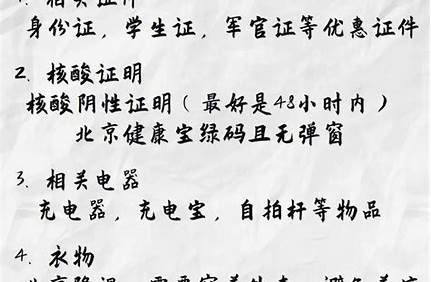 1. 相关证件
身份证，学生证，军官证等优惠证件
2. 核酸证明
核酸阴性证明（最好是48小时内）
北京健康宝绿码且无弹窗
3. 相关电器
充电器，充电宝，自拍杆等物品
4. 衣物